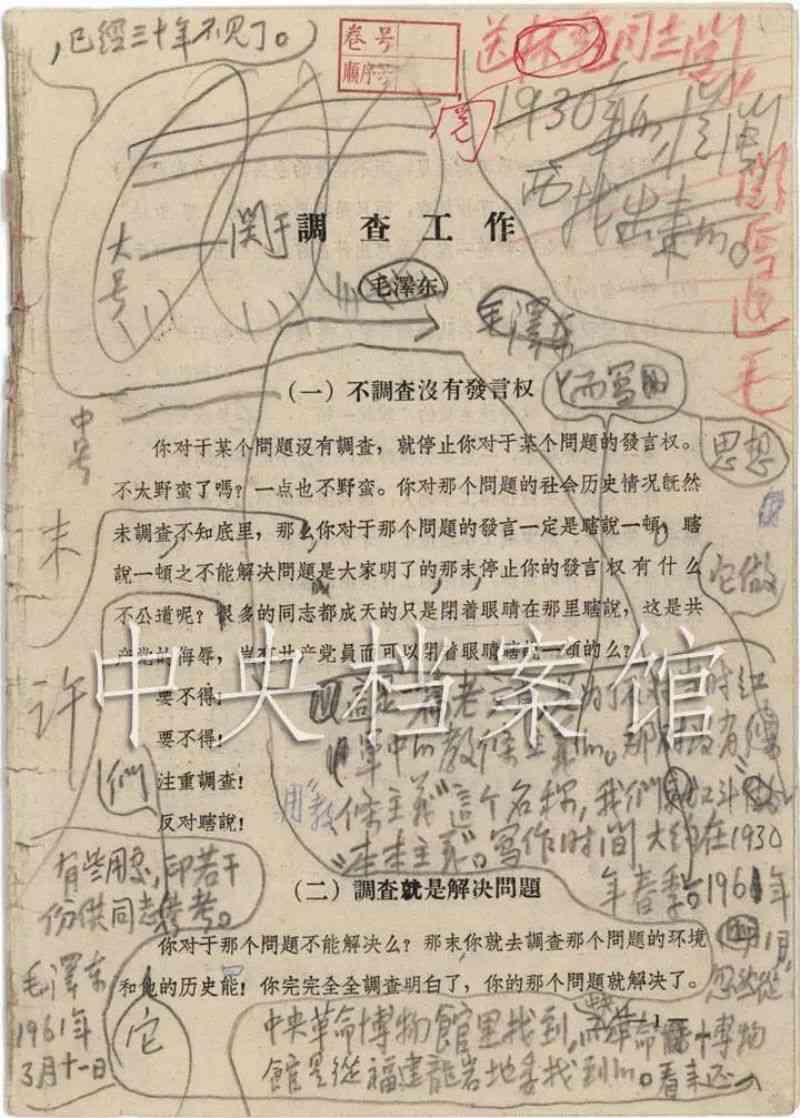 ，已經三十年不見了。
卷号
順序号
送 同志閱
1930年
找出来的。
閱后退毛
大号
関于調查工作
毛澤东
毛澤东
（一）不調查沒有發言权
中号
思想
你对于某个問題沒有調查，就停止你对于某个問題的發言权。
不太野蛮了嗎？一点也不野蛮。你对那个問題的社会历史情况旣然
未調查不知底里，那么你对于那个問題的發言一定是瞎說一頓，瞎
說一頓之不能解决問題是大家明了的，那末，停止你的發言权有什么
不公道呢？很多的同志都成天的只是閉着眼睛在那里瞎說，这是共
产党的侮辱，岂有共产党員而可以閉着眼瞎說一頓的么？
末
它做
許
中央档案馆
要不得！
要不得！
注重調查！
反对瞎說！
們
这是一篇老文章，是为了反对当时紅
軍中的教條主義 那时没有
用“教條主義”這个名称，我們
“本本主義”。寫作时间大約在1930
年春季。1961年
1月，
忽然從
（二）調查就是解决問題
有些用处，印若干
份供同志參考。
毛澤东
1961年
3月十一日
你对于那个問題不能解决么？那末，你就去調查那个問題的环境
和他的历史能！你完完全全調查明白了，你的那个問題就解决了。
它
中央革命博物館里找到，
革命博物
館是從福建龍岩地委找到的。看来还